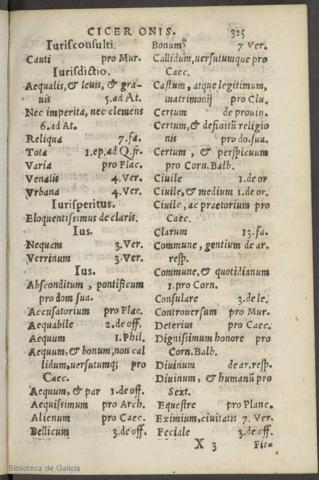 CICERONIS. 325
Iurisconsulti.
Cauti pro Mur.
Iurisdictio.
Aequalis, & leuis, & gra-
uis 5. ad At.
Nec imperita, nec clemens
6. ad At.
Reliqua 7. fa.
Tota 1. ep. ad Q. fr.
Varia pro Flac.
Venalis 4. Ver.
Vrbana 4. Ver.
Iurisperitus.
Eloquentissimus de claris.
Ius.
Nequam 3. Ver.
Verrinum 3. Ver.
Ius.
Absconditum, pontificum
pro dom sua.
Accusatorium pro Flac.
Aequabile 2. de off.
Aequum 1. Phil.
Aequum, & bonum, non cal
lidum, uersutumq; pro
Caec.
Aequum, & par 1. de off.
Aequissimum pro Arch.
Alienum pro Caec.
Bellicum 3. de off.
Bonum 7 Ver.
Callidum, uersutumque pro
Caec.
Castum, atque legitimum,
matrimonij pro Clu.
Certum de prouin.
Certum, & definitū religio
nis pro do. sua.
Certum, & perspicuum
pro Corn. Balb.
Ciuile 1. de or
Ciuile, & medium 1. de or.
Ciuile, ac praetorium pro
Caec.
Clarum 13. fa.
Commune, gentium de ar.
resp.
Commune, & quotidianum
1. pro Corn.
Consulare 3. de le.
Controuersum pro Mur.
Deterius pro Caec.
Dignissimum honore pro
Corn. Balb.
Diuinum de ar. resp.
Diuinum, & humanū pro
Sext.
Equestre pro Planc.
Eximium, ciuitatis 7. Ver.
Feciale 3. de off.
X 3
Biblioteca de Galicia